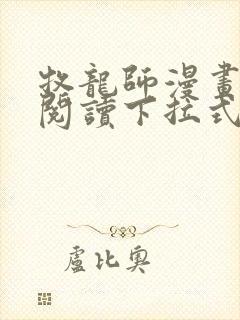 牧龍師漫畫
閱讀下拉式
盧比奧